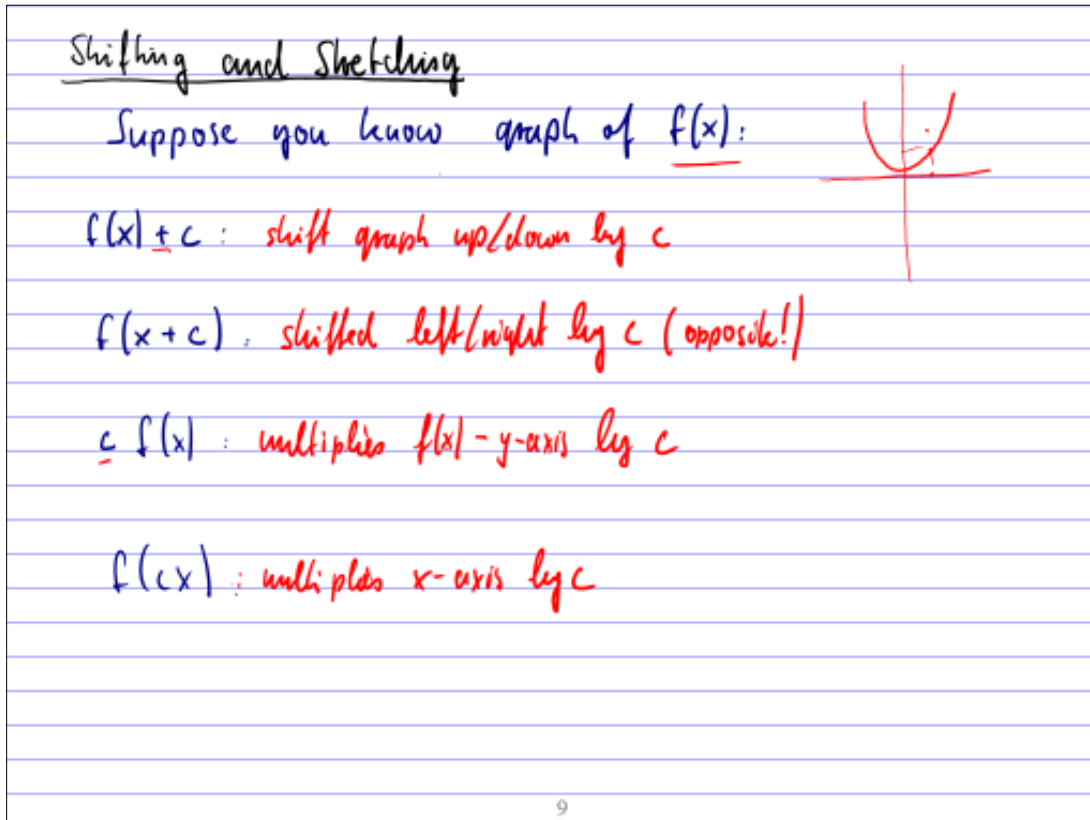 Shifting and Stretching
Suppose you know graph of f(x):
f(x) + c : shift graph up/down by c
f(x + c) : shifted left/right by c (opposite!)
c f(x) : multiplies f(x) - y-axis by c
f(cx) : multiplies x-axis by c
9